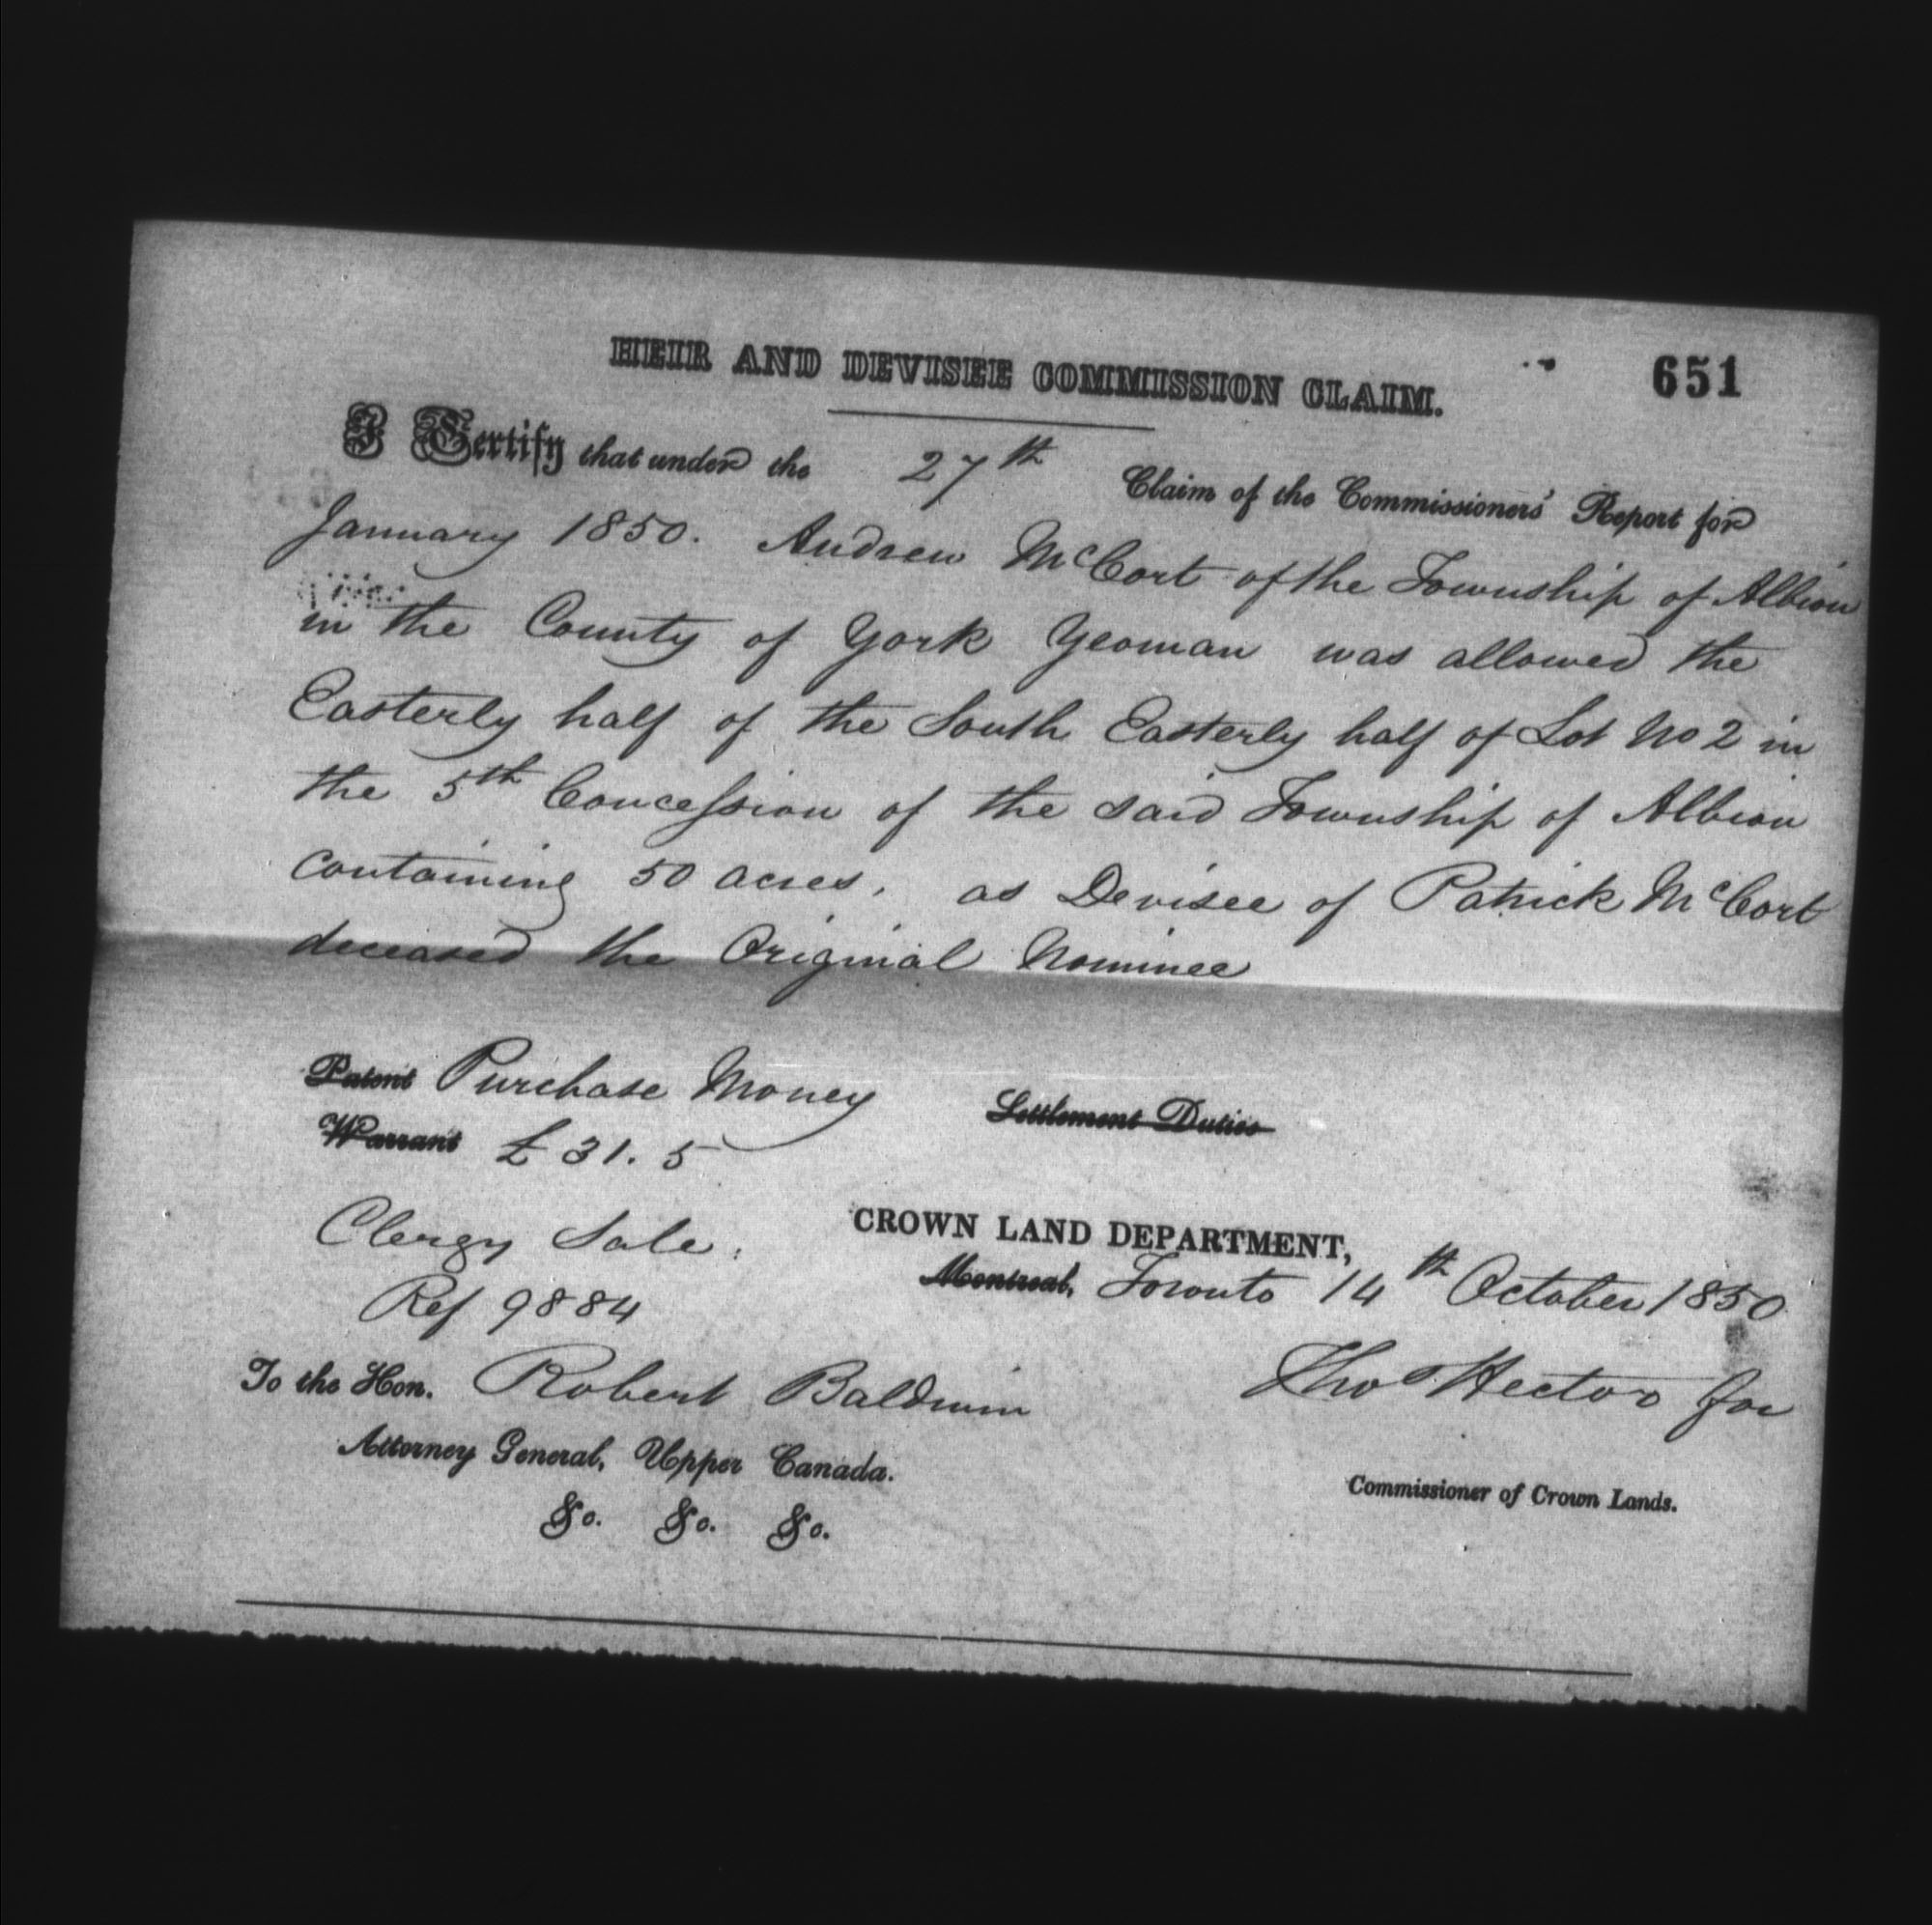 651
HEIR AND DEVISEE COMMISSION CLAIM.
I Certify that under the 27th Claim of the Commissioners' Report for
January 1850. Andrew McCort of the Township of Albion
in the County of York Yeoman was allowed the
Easterly half of the South Easterly half of Lot No 2 in
the 5th Concession of the said Township of Albion
containing 50 acres, as Devisee of Patrick McCort
deceased the Original Nominee
Patent Purchase Money Settlement Duties
Warrant £31.5
Clergy Sale.
CROWN LAND DEPARTMENT,
Montreal, Toronto 14th October 1850
Ref 9884
To the Hon. Robert Baldwin
Thos Hector for
Attorney General, Upper Canada.
Commissioner of Crown Lands.
&c. &c. &c.